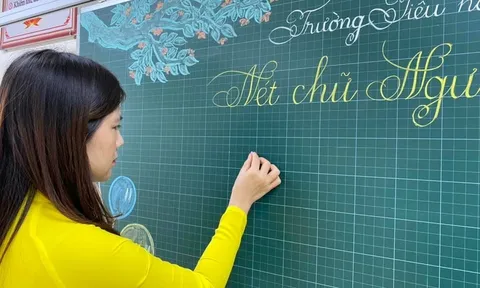 Trường Tiểu h
Nét chữ Ngư